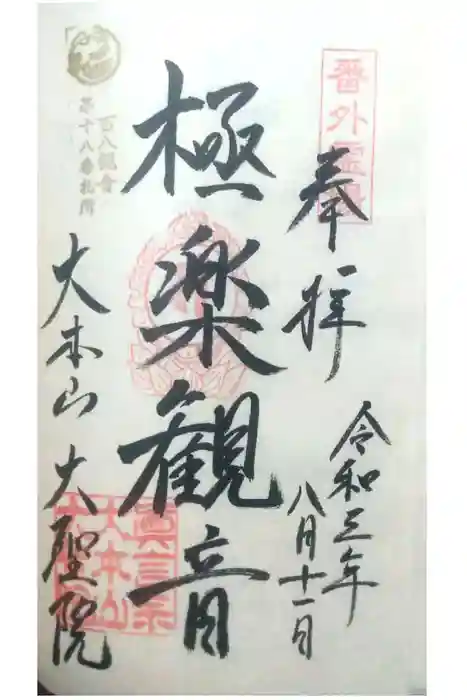 番外霊場
奉拝
令和三年
八月十一日
極楽観音
百八観音
第十八番札所
大本山 大聖院